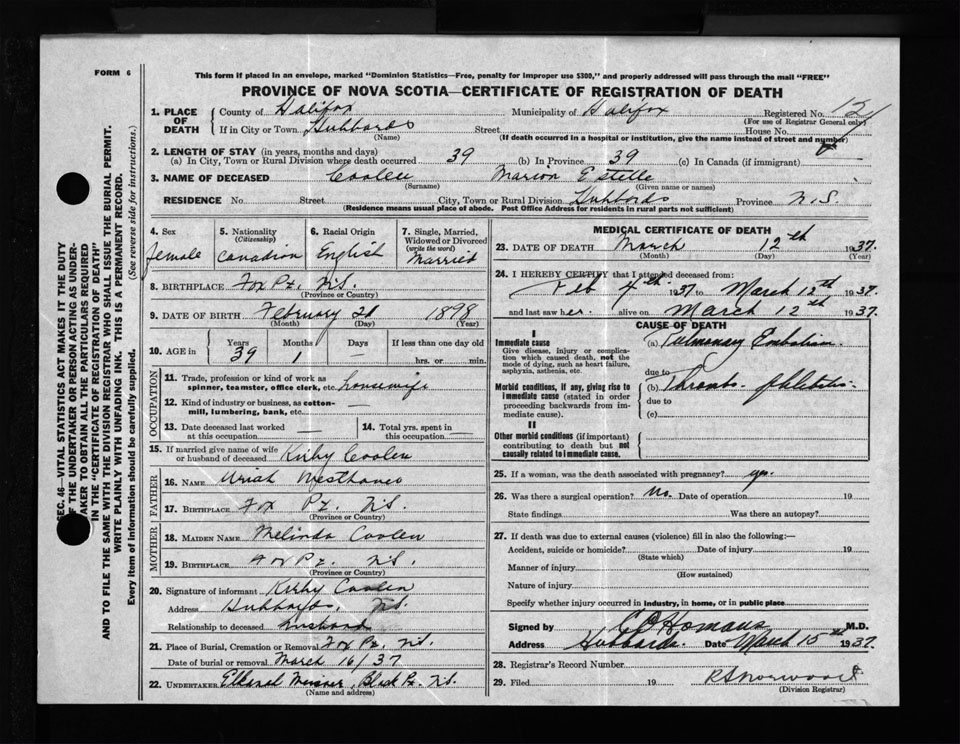 FORM 6
This form if placed in an envelope, marked "Dominion Statistics—Free, penalty for improper use $300," and properly addressed will pass through the mail "FREE"
PROVINCE OF NOVA SCOTIA—CERTIFICATE OF REGISTRATION OF DEATH
1. PLACE OF DEATH County of Halifax Municipality of Halifax Registered No.
(For use of Registrar General only)
If in City or Town Hubbards Street House No.
(Name) (If death occurred in a hospital or institution, give the name instead of street and number)
2. LENGTH OF STAY (in years, months and days)
(a) In City, Town or Rural Division where death occurred 39 (b) In Province 39 (c) In Canada (if immigrant)
3. NAME OF DECEASED Coolen Marion Estelle
(Surname) (Given name or names)
RESIDENCE No. Street City, Town or Rural Division Hubbards Province N.S.
(Residence means usual place of abode. Post Office Address for residents in rural parts not sufficient)
4. Sex female
5. Nationality (Citizenship) Canadian
6. Racial Origin English
7. Single, Married, Widowed or Divorced (write the word) Married
8. BIRTHPLACE Fox Pt. N.S.
(Province or Country)
9. DATE OF BIRTH February 2d 1898
(Month) (Day) (Year)
10. AGE in Years Months Days If less than one day old
39 1 — hrs. or min.
OCCUPATION
11. Trade, profession or kind of work as spinner, teamster, office clerk, etc. housewife
12. Kind of industry or business, as cotton-mill, lumbering, bank, etc. —
13. Date deceased last worked at this occupation — 14. Total yrs. spent in this occupation —
15. If married give name of wife or husband of deceased Kirby Coolen
FATHER
16. NAME Uriah Westhaver
17. BIRTHPLACE Fox Pt. N.S.
(Province or Country)
MOTHER
18. MAIDEN NAME Melinda Coolen
19. BIRTHPLACE Fox Pt. N.S.
(Province or Country)
20. Signature of informant Kirby Coolen
Address Hubbards, N.S.
Relationship to deceased husband
21. Place of Burial, Cremation or Removal Fox Pt. N.S.
Date of burial or removal March 16/37
22. UNDERTAKER Black Pt. N.S.
(Name and address)
MEDICAL CERTIFICATE OF DEATH
23. DATE OF DEATH March 12th 1937.
(Month) (Day) (Year)
24. I HEREBY CERTIFY that I attended deceased from:
Feb 4th 1937 to March 12th 1937.
and last saw her alive on March 12th 1937.
CAUSE OF DEATH
I
Immediate cause
Give disease, injury or complication which caused death, not the mode of dying, such as heart failure, asphyxia, asthenia, etc.
(a) Pulmonary Embolism
due to
Morbid conditions, if any, giving rise to immediate cause (stated in order proceeding backwards from immediate cause).
(b) Thrombo-phlebitis
due to
(c)
II
Other morbid conditions (if important) contributing to death but not causally related to immediate cause.
25. If a woman, was the death associated with pregnancy? yes.
26. Was there a surgical operation? No. Date of operation 19
State findings Was there an autopsy?
27. If death was due to external causes (violence) fill in also the following:—
Accident, suicide or homicide? Date of injury 19
(State which)
Manner of injury
(How sustained)
Nature of injury
Specify whether injury occurred in industry, in home, or in public place
Signed by M.D.
Address Hubbards. Date March 15th 1937.
28. Registrar's Record Number
29. Filed 19
(Division Registrar)
SEC. 46—VITAL STATISTICS ACT MAKES IT THE DUTY
OF THE UNDERTAKER OR PERSON ACTING AS UNDER-
TAKER TO OBTAIN ALL THE PARTICULARS REQUIRED
IN THE "CERTIFICATE OF REGISTRATION OF DEATH"
AND TO FILE THE SAME WITH THE DIVISION REGISTRAR WHO SHALL ISSUE THE BURIAL PERMIT.
WRITE PLAINLY WITH UNFADING INK. THIS IS A PERMANENT RECORD.
Every item of information should be carefully supplied. (See reverse side for instructions.)